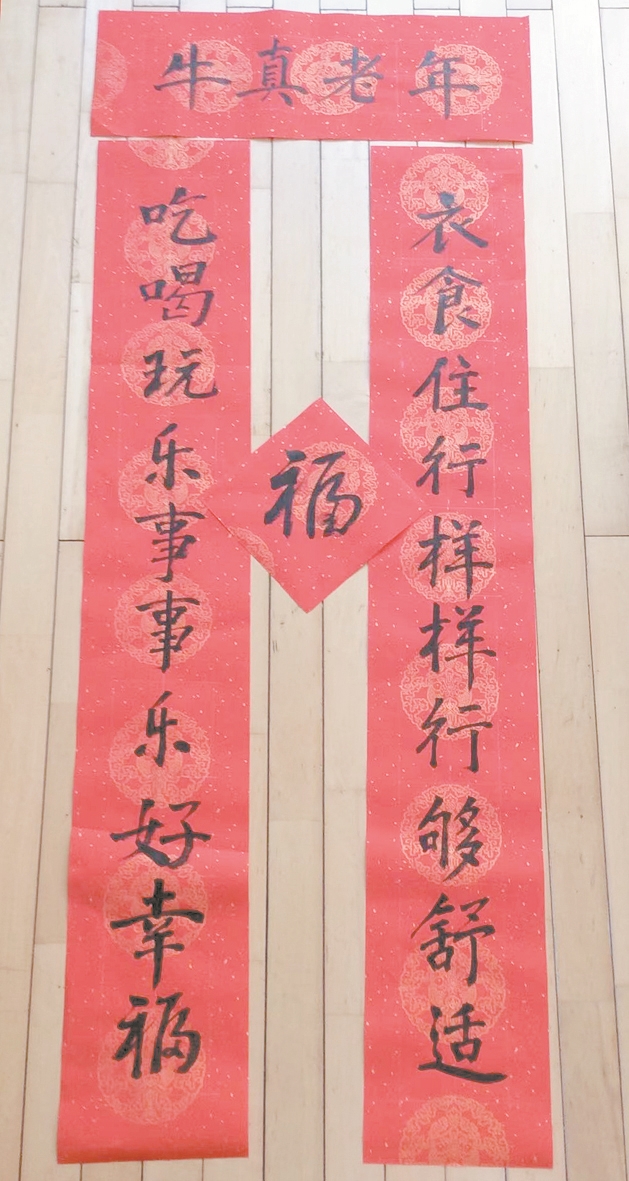 年老真牛
衣食住行样样行够舒适
吃喝玩乐事事乐好幸福
福